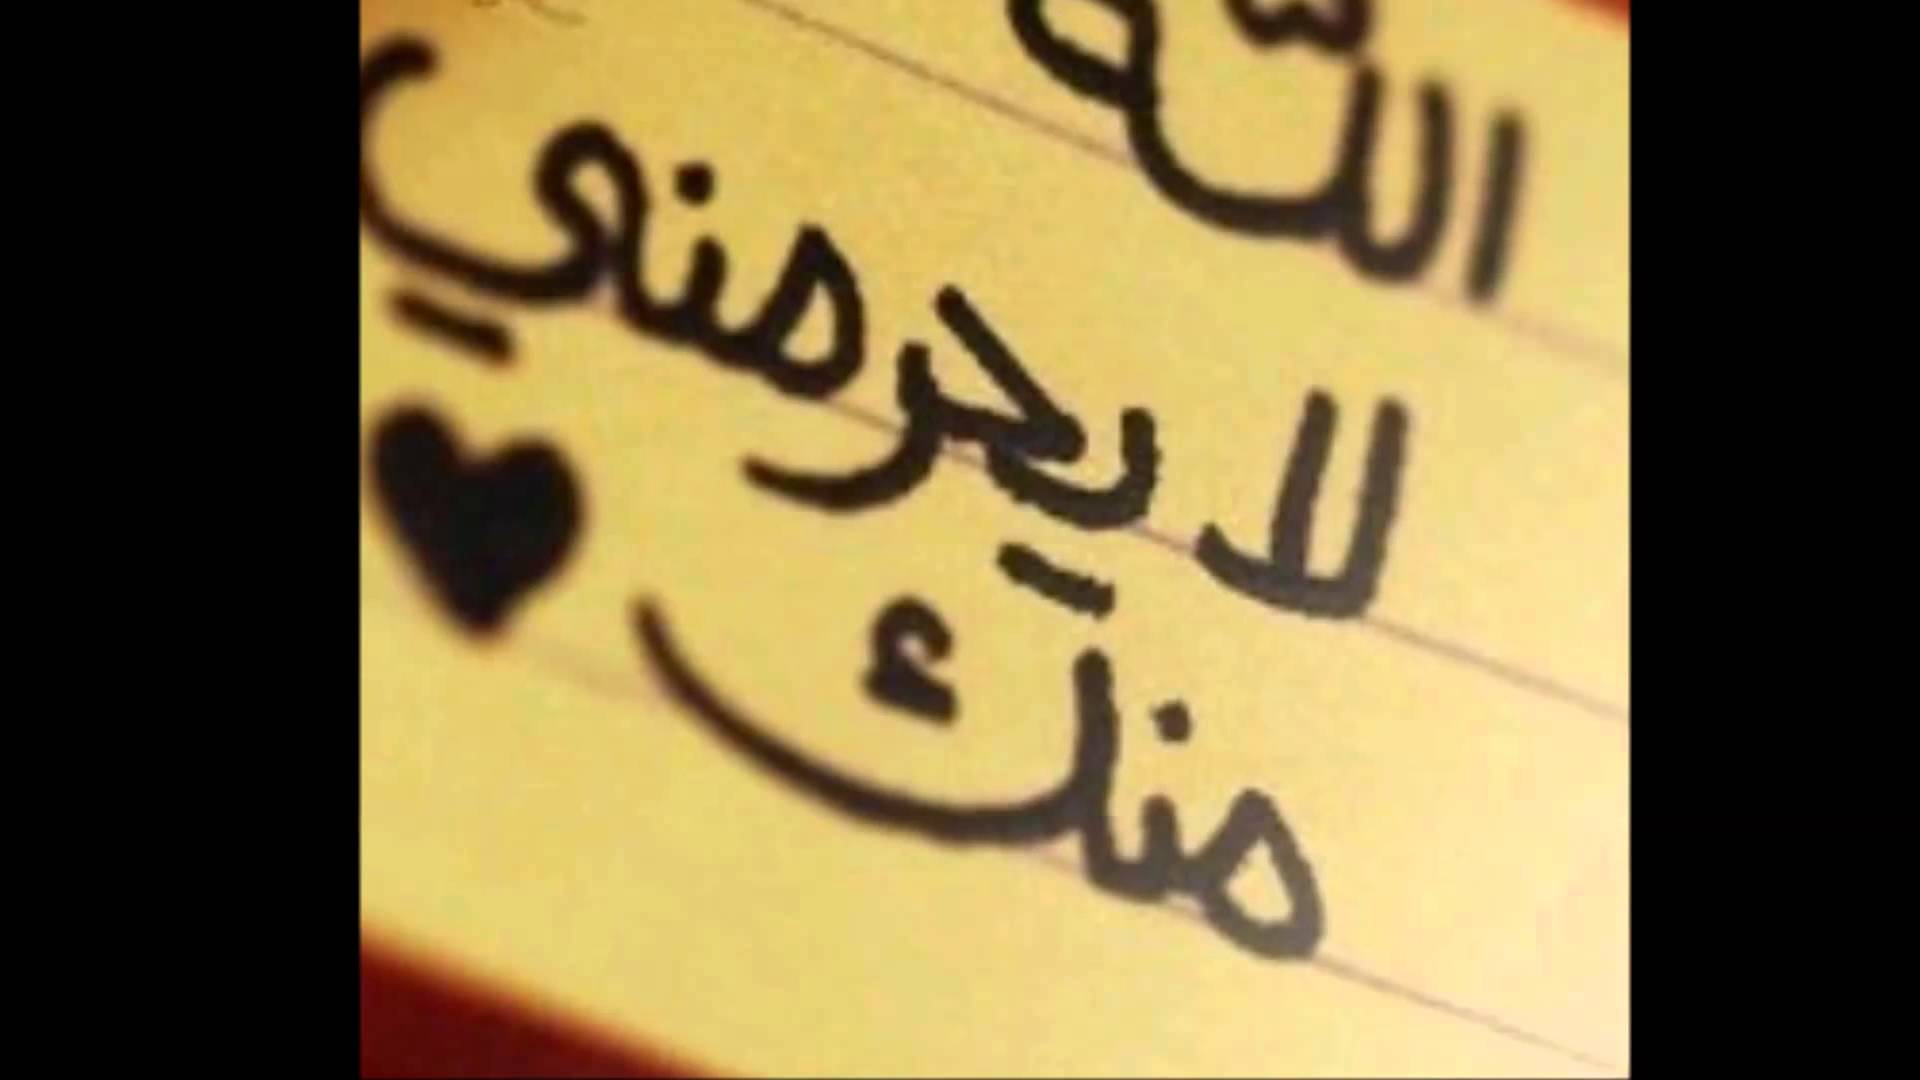 اللّه
لا يحرمني
منك